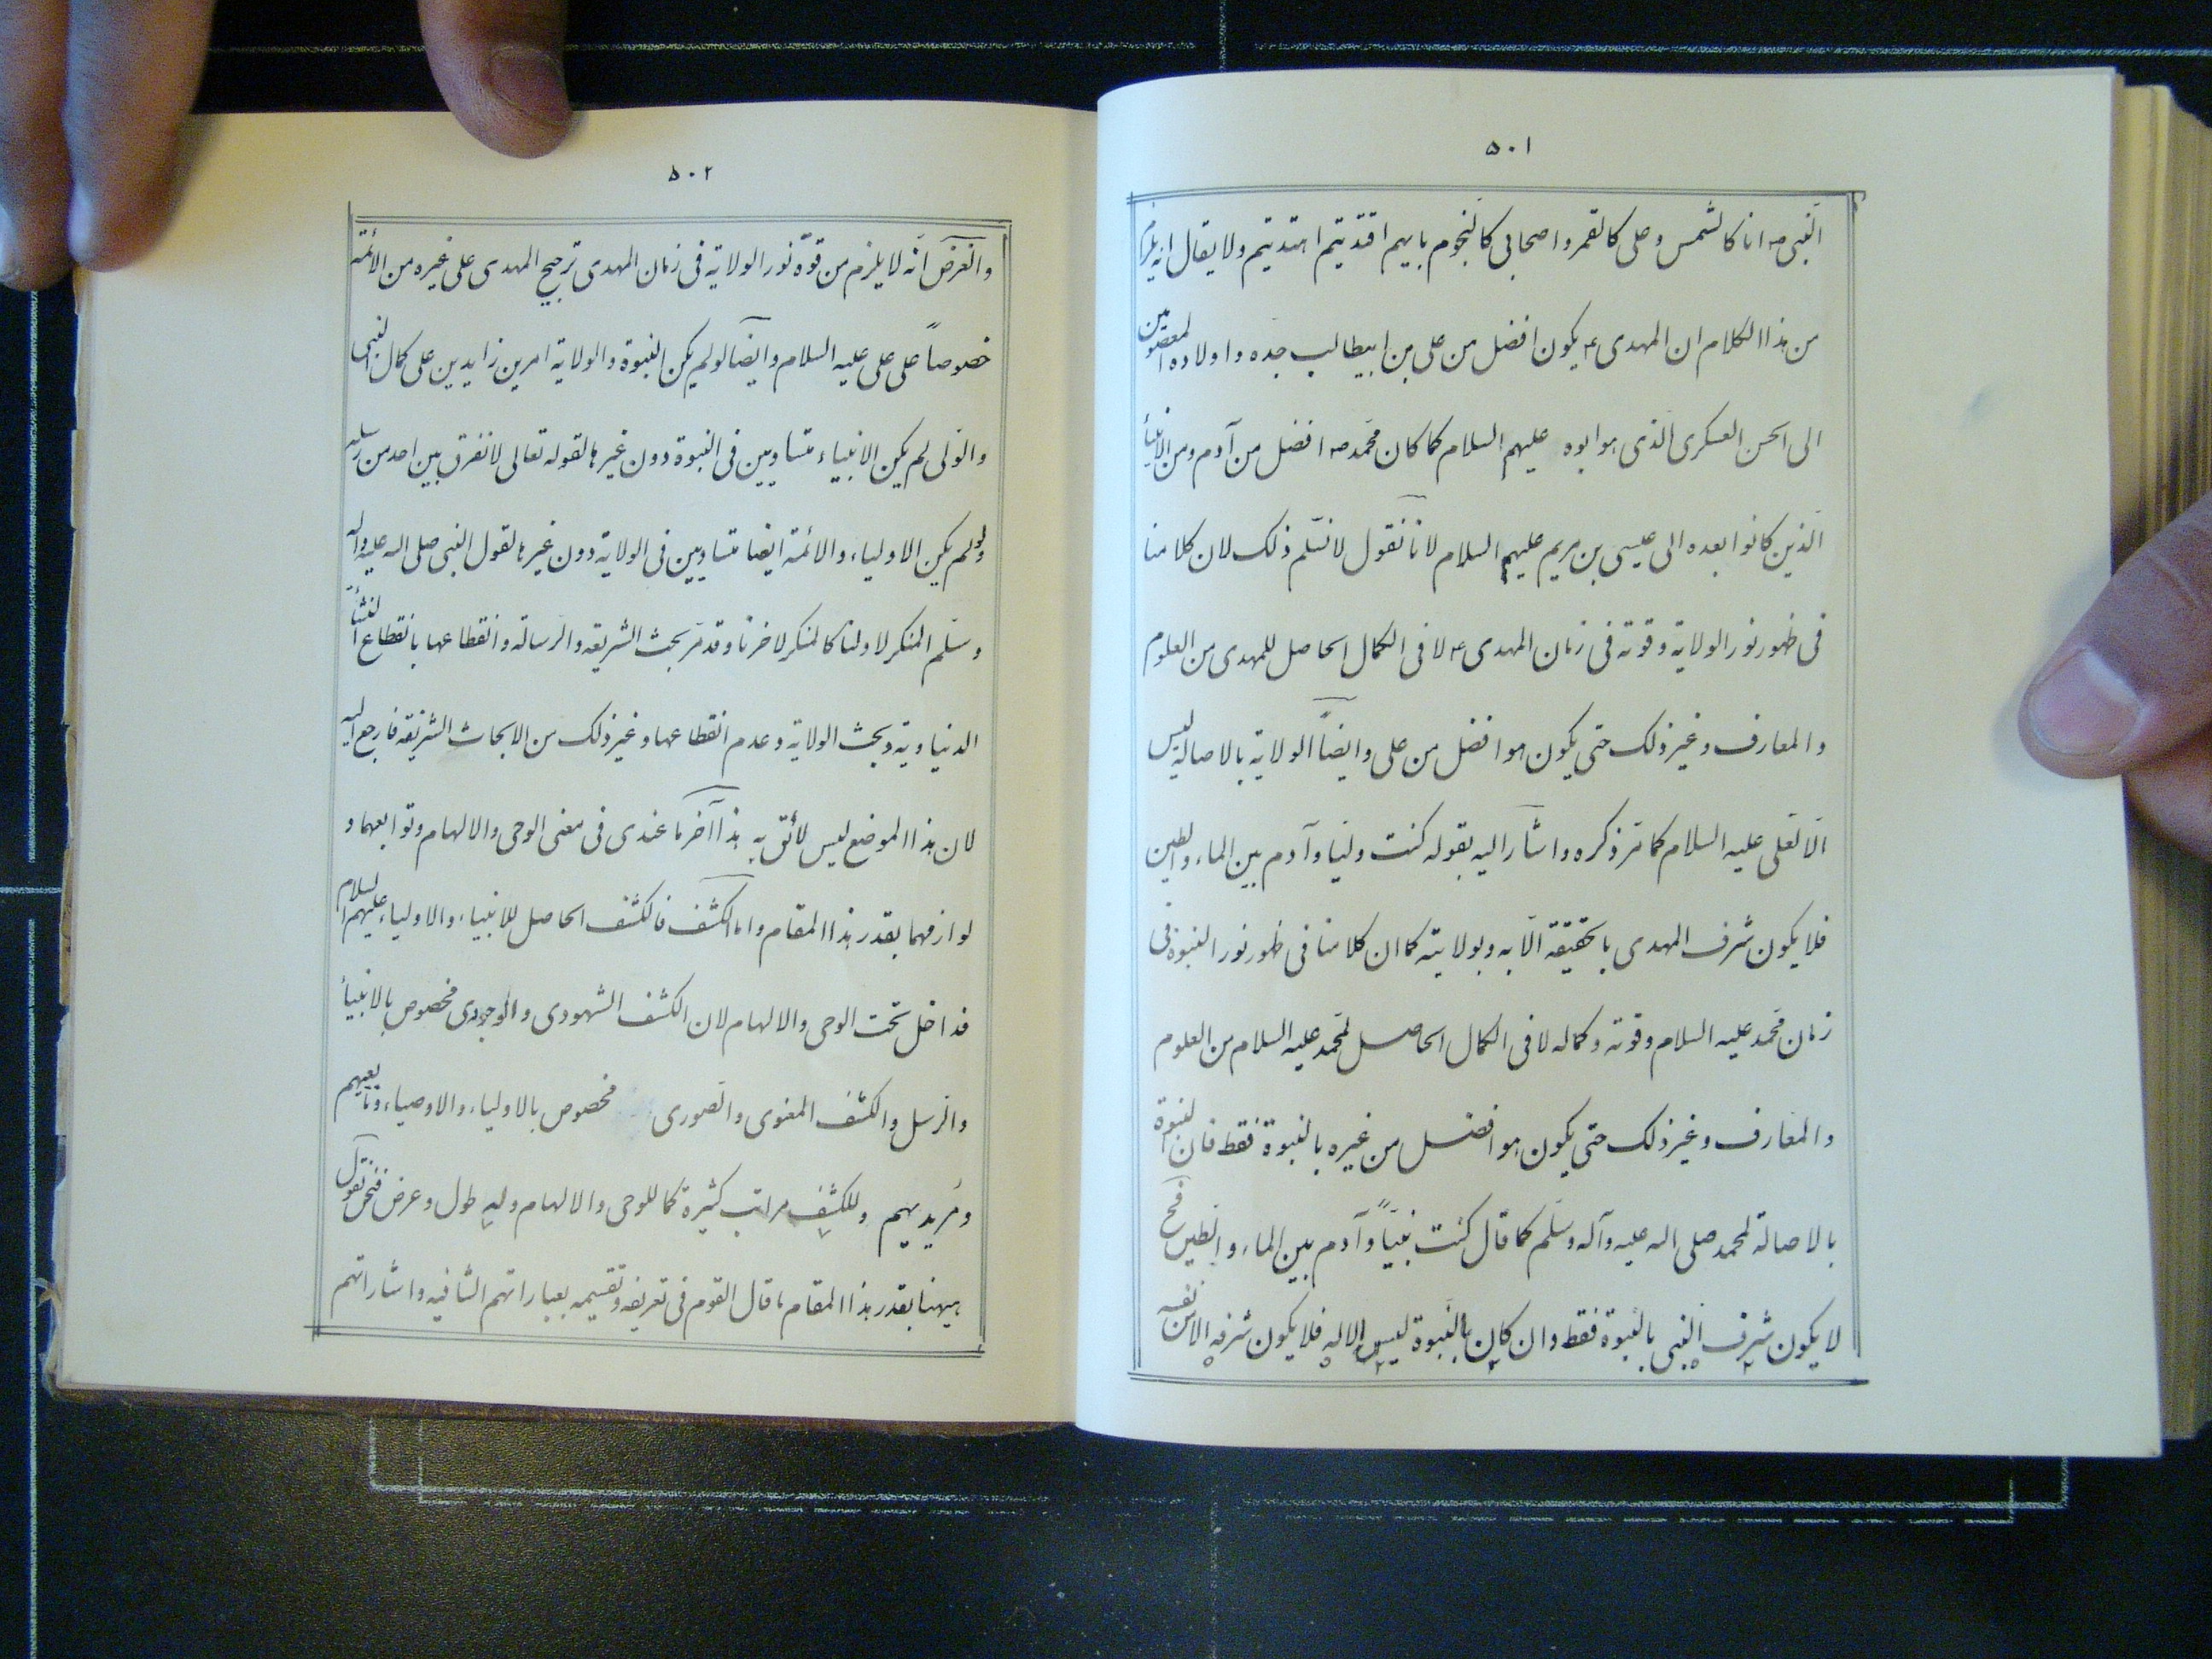 ٥٠١
النبی ص انا کالشمس و علی کالقمر و اصحابی کالنجوم بایهم اقتدیتم اهتدیتم ولا یقال انه یلزم
من هذا الکلام ان المهدی ع یکون افضل من علی بن ابیطالب جده و اولاده المعصومین
الی الحسن العسکری الذی هو ابوه علیهم السلام کما کان محمد ص افضل من آدم و من الانبیاء
الذین کانوا بعده الی عیسی بن مریم علیهم السلام لانا نقول لا نسلّم ذلک لان کلامنا
فی ظهور نور الولایة و قوته فی زمان المهدی ع لا فی الکمال الحاصل للمهدی من العلوم
و المعارف و غیر ذلک حتی یکون هو افضل من علی و ایضاً الولایة بالاصالة لیس
الّا لعلی علیه السلام کما مرّ ذکره و اشار الیه بقوله کنت ولیا و آدم بین الماء والطین
فلا یکون شرف المهدی بالحقیقة الّا به و بولایته کما ان کلامنا فی ظهور نور النبوة فی
زمان محمد علیه السلام و قوته و کماله لا فی الکمال الحاصل لمحمد علیه السلام من العلوم
و المعارف و غیر ذلک حتی یکون هو افضل من غیره بالنبوة فقط فان النبوة
بالاصالة لمحمد صلی الله علیه و آله و سلّم کما قال کنت نبیاً و آدم بین الماء و الطین فح
لا یکون شرف النبی بالنبوة فقط و ان کان بالنبوة لیس الا له فلا یکون شرفه الا من نفسه
٥٠٢
والغرض انّه لا یلزم من قوّة نور الولایة فی زمان المهدی ترجیح المهدی علی غیره من الأئمة
خصوصاً علی علی علیه السلام و ایضا لو لم یکن النبوة و الولایة امرین زایدین علی کمال النبی
و الولی لم یکن الانبیاء متساویین فی النبوة دون غیرها لقوله تعالی لا نفرق بین احد من رسله
ولو لم یکن الاولیاء و الائمة ایضا متساویین فی الولایة دون غیرها لقول النبی صلی الله علیه وآله
و سلّم المنکر لاولنا کالمنکر لاخرنا و قد مرّ بحث الشریعه و الرساله و انقطاعها بانقطاع النشأة
الدنیاویة و بحث الولایة و عدم انقطاعها و غیر ذلک من الابحاث الشریفة فارجع الیه
لان هذا الموضع لیس لائق به هذا آخر ما عندی فی معنی الوحی و الالهام و توابعهما و
لوازمهما بقدر هذا المقام و اما الکشف فالکشف الحاصل للانبیاء و الاولیاء علیهم السلام
فداخل تحت الوحی و الالهام لان الکشف الشهودی و الوجودی مخصوص بالانبیاء
و الرسل و الکشف المعنوی و الصوری مخصوص بالاولیاء و الاوصیاء و تابعیهم
و مریدیهم و للکشف مراتب کثیرة کما للوحی و الالهام و له طول و عرض فنحن نقول
هیهنا بقدر هذا المقام ما قال القوم فی تعریفه و تقسیمه بعباراتهم الشافیه و اشاراتهم